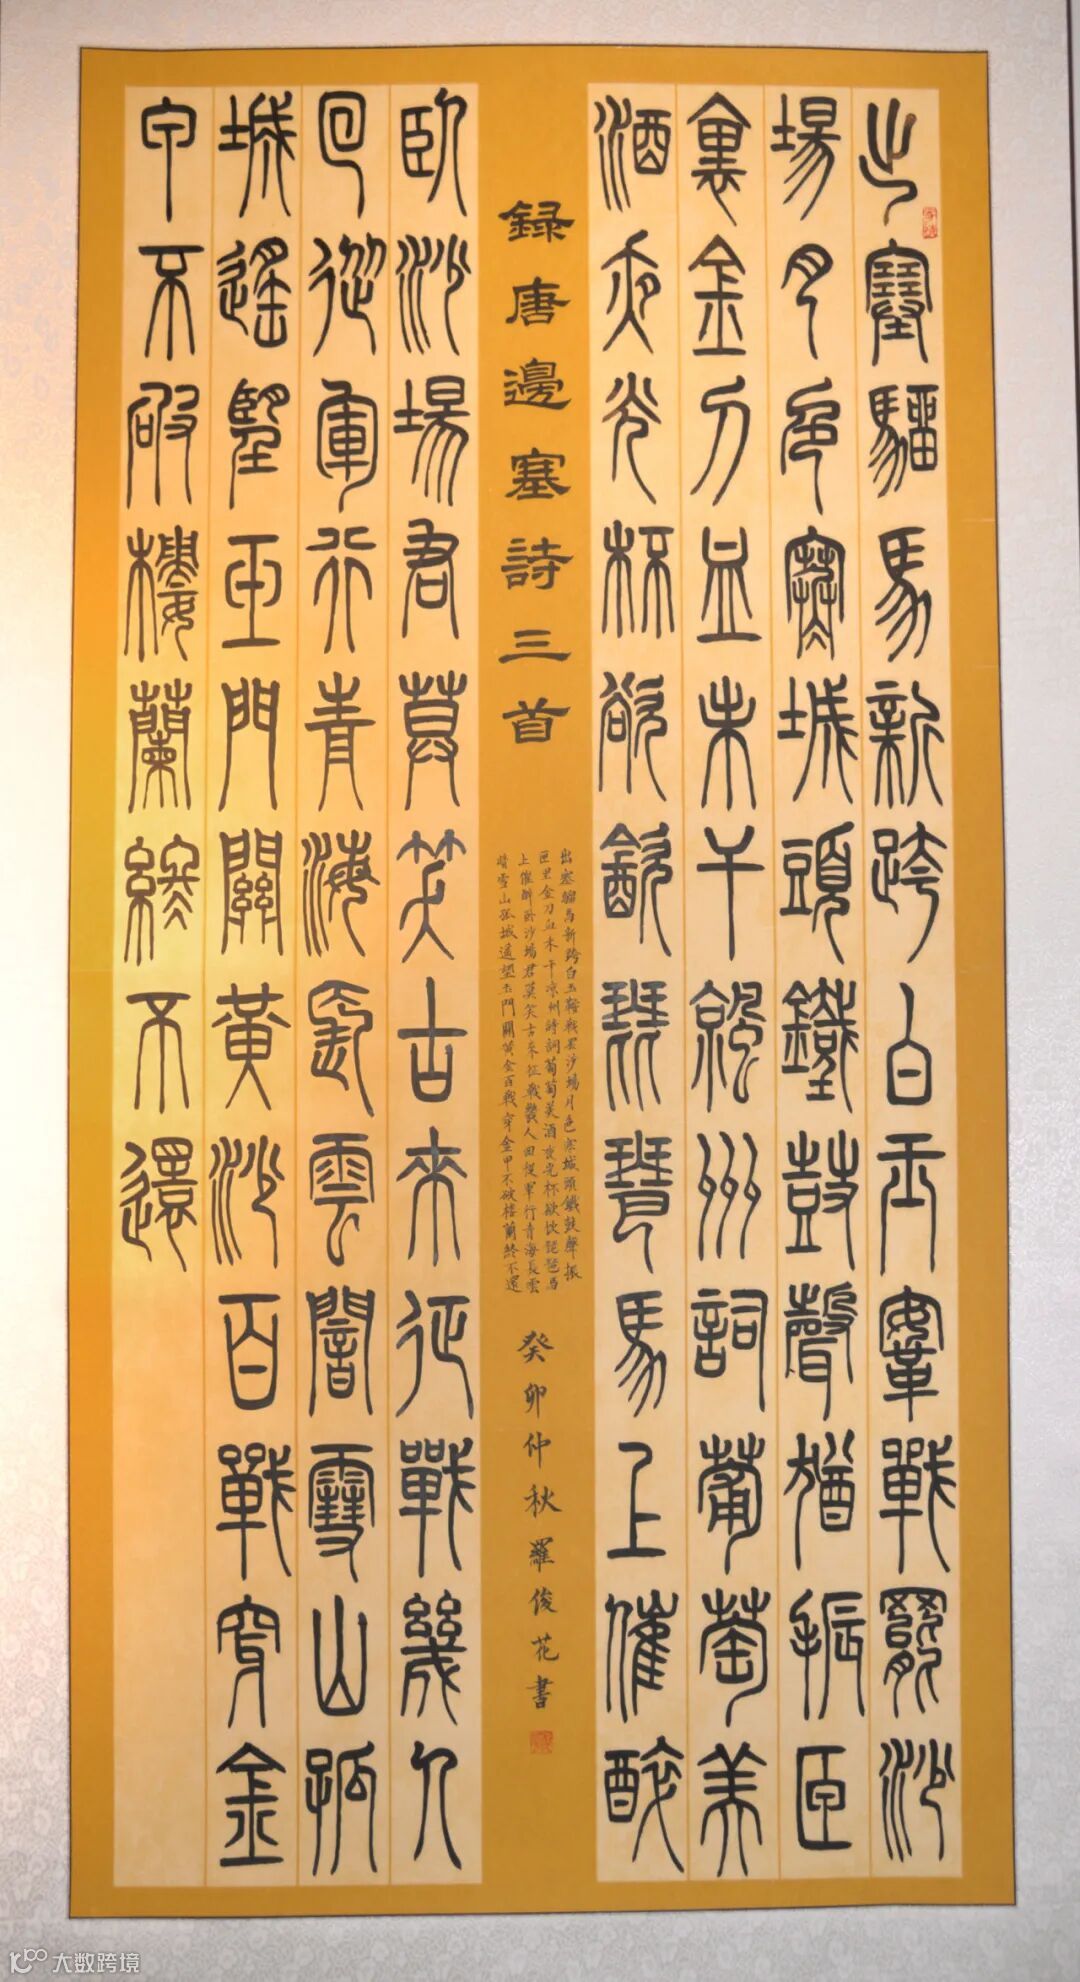 出塞騮馬新跨白玉鞌戰罷沙
場月色寒城頭鐵鼓聲猶振匣
裏金刀血未干涼州詞葡萄美
酒夜光杯欲飲琵琶馬上催醉
録唐邊塞詩三首
出塞騮馬新跨白玉鞍戰罷沙場月色寒城頭鐵鼓聲振
匣里金刀血未干凉州詩詞葡萄美酒夜光杯欲饮琵琶馬
上催醉卧沙場君莫笑古來征戰幾人回從軍行青海長雲
暗雪山孤城遥望玉門關黄金百戰穿金甲不破楼蘭終不還
癸卯仲秋羅俊花書
臥沙場君莫笑古來征戰幾人
回從軍行青海長雲闇雪山孤
城遙望玉門關黃沙百戰穿金
甲不破樓蘭終不還
大数跨境